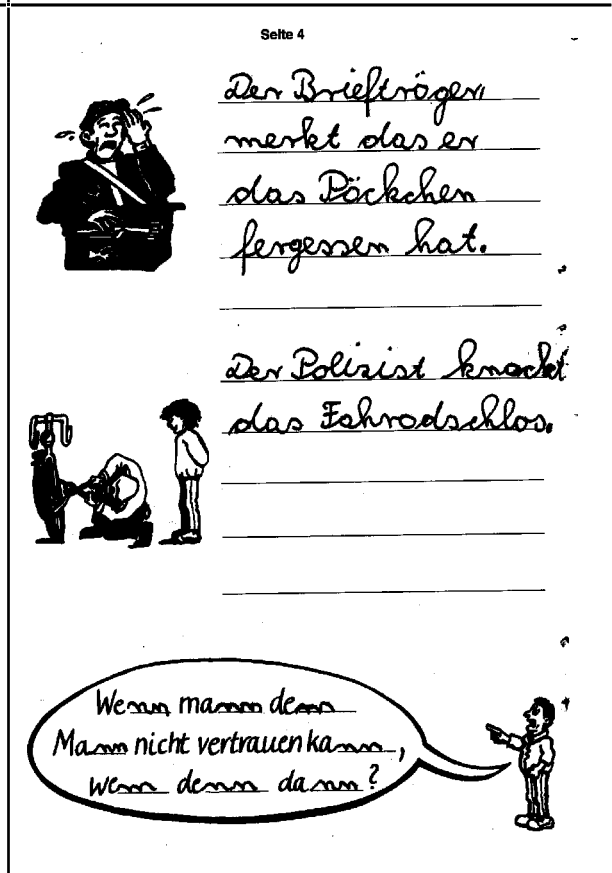 Seite 4
Der Briefträger
merkt das er
das Päckchen
fergessen hat.
Der Polizist knackt
das Fahradschlos.
Wenn mann denn
Mann nicht vertrauen kann,
wenn denn dann?